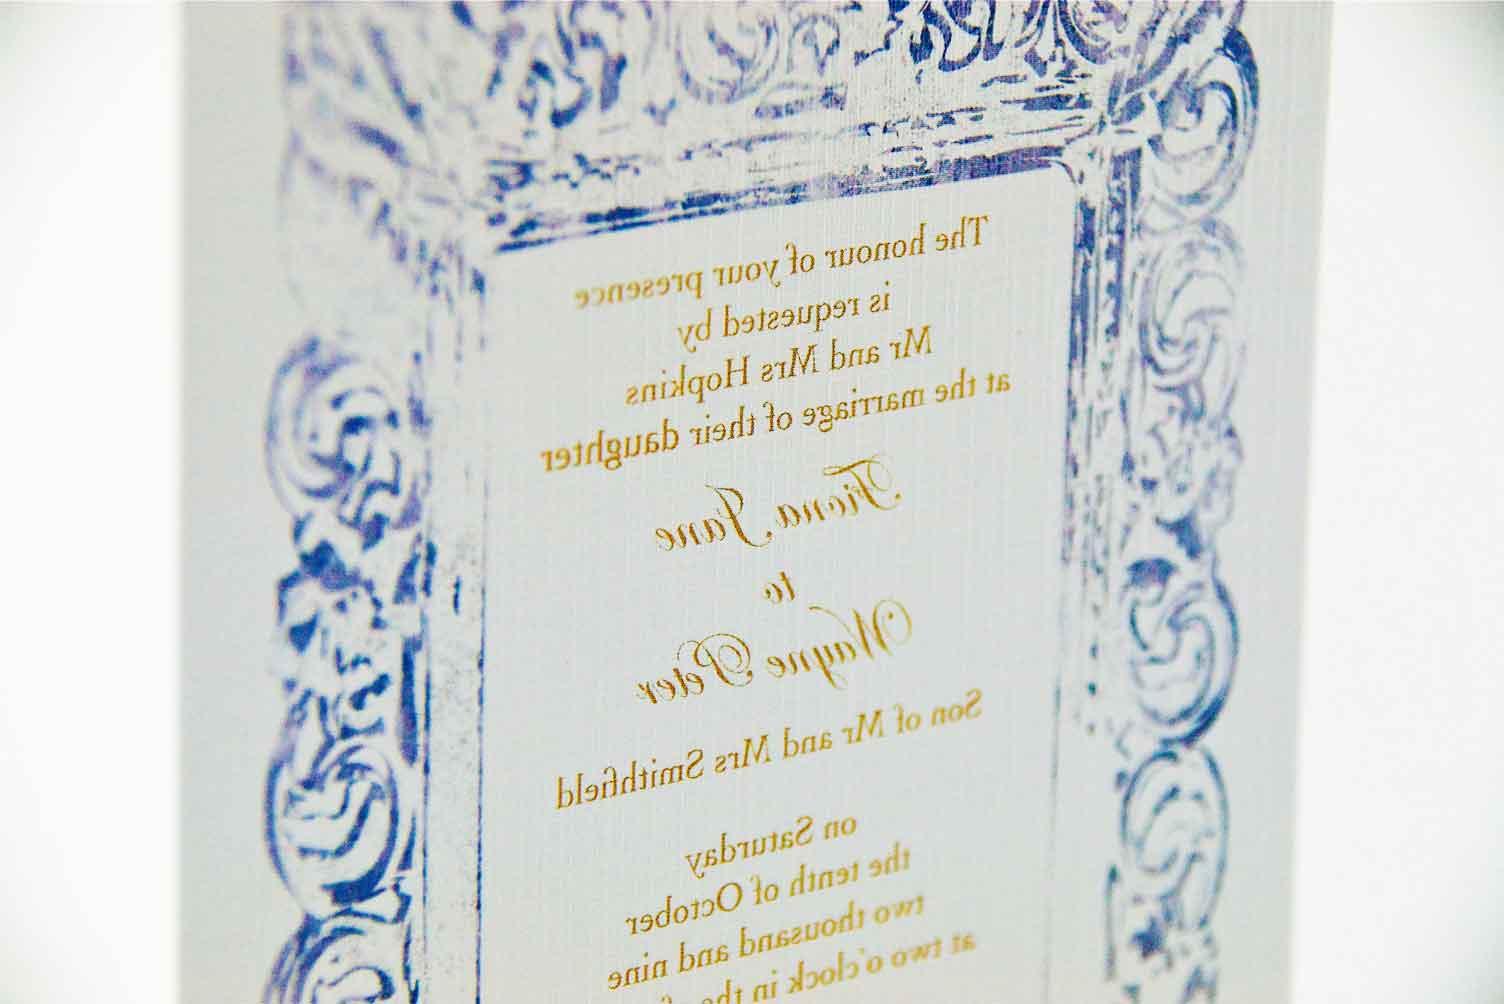 The honour of your presence
is requested by
Mr and Mrs Hopkins
at the marriage of their daughter
Fiona Jane
to
Wayne Peter
Son of Mr and Mrs Smithfield
on Saturday
the tenth of October
two thousand and nine
at two o'clock in the